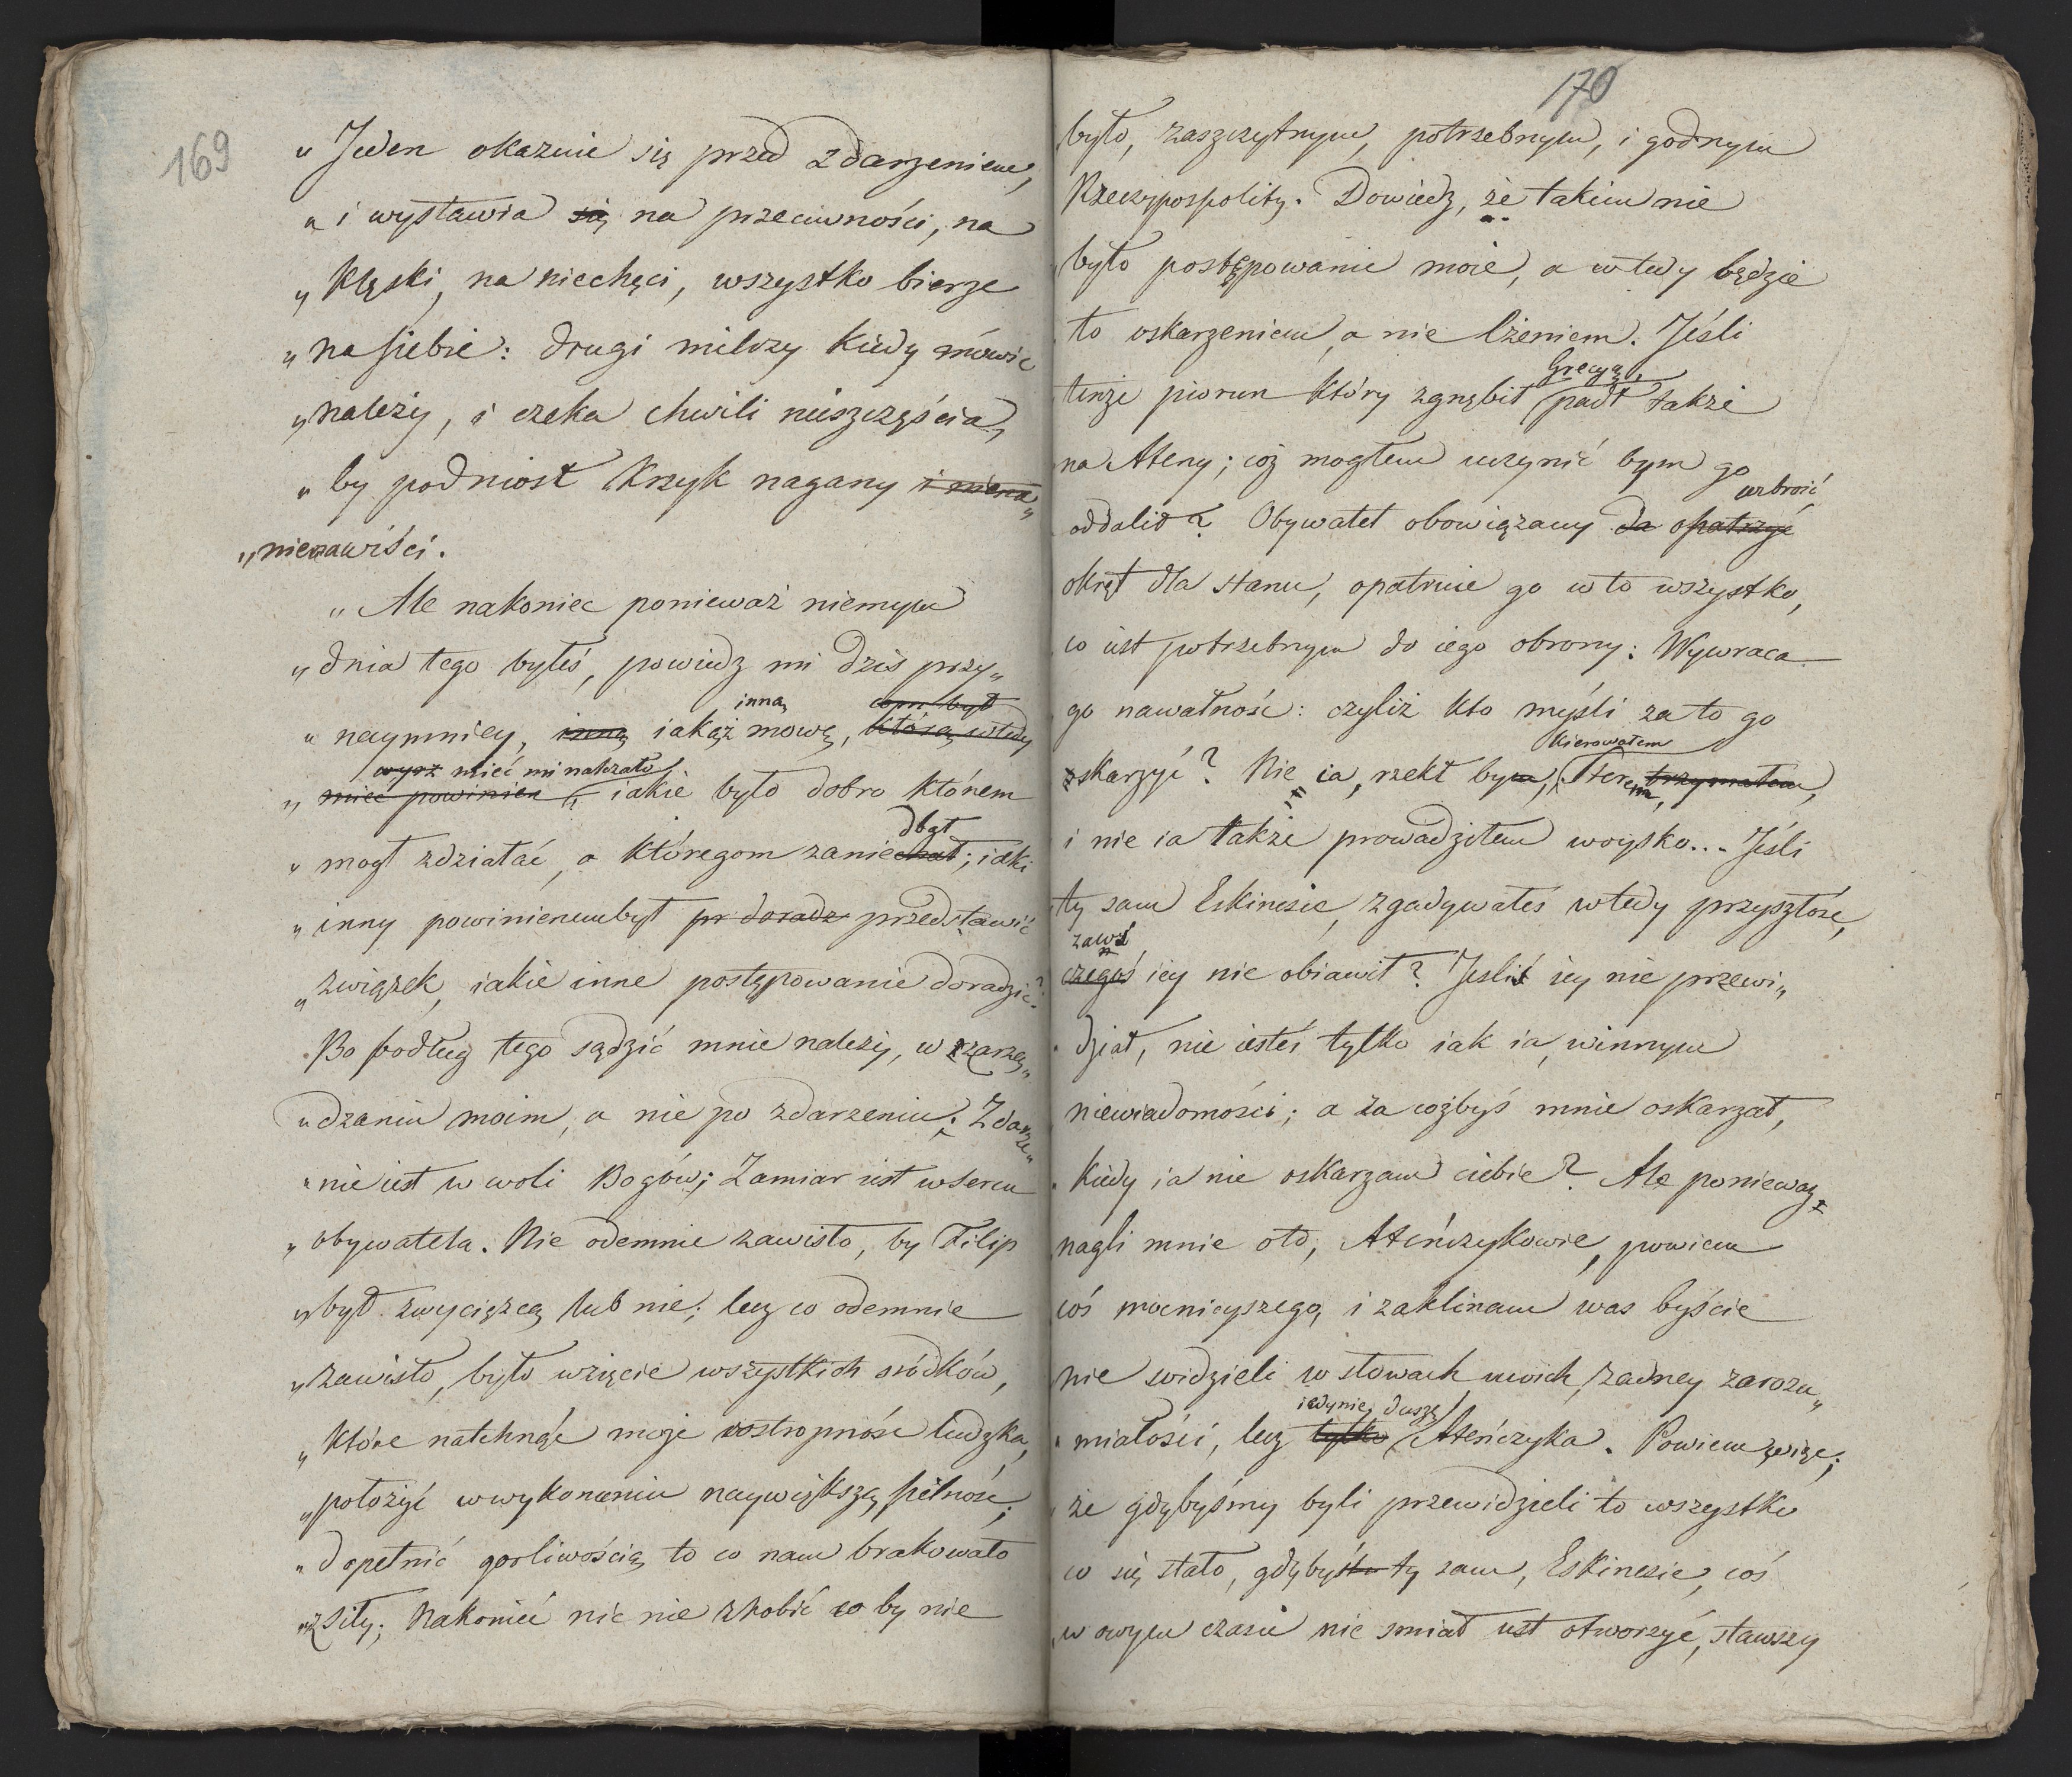 169
„ Jeden okazuie się przed zdarzeniem,
„ i wystawia się na przeciwności, na
„ Klęski, na niechęci, wszystko bierze
„ na siebie: drugi milczy kiedy mówić
„ należy, i czeka chwili nieszczęścia,
„ by podniosł krzyk nagany i niena„
„ nienawiści.
„ Ale nakoniec ponieważ niemym
„ dnia tego byłeś, powiedz mi dziś przy„
inną com był
„ naymniey, inną iakąż mowę, którą wtedy
wyrz mieć mi należało
„ mieć powinien, iakie było dobro którem
dbał
„ mogł zdziałać, a któregom zaniechał; iaki
„ inny powinienembył pr doradz przedstawić
„ związek, iakie inne postępowanie doradzić?
„ Bo podług tego sądzić mnie należy, w zarzą„
„ dzaniu moim, a nie po zdarzeniu; Zdarze„
„ nie iest w woli Bogów; Zamiar iest w sercu
„ obywatela. Nie odemnie zawisło, by Filip
„ był zwyciężcą lub nie; lecz co odemnie
„ zawisło, było wzięcie wszystkich sródków,
„ które natchnąć może rostropność ludzka,
„ położyć w wykonaniu naywiększą pilność;
„ dopełnić gorliwością to co nam brakowało
„ z siły; Nakoniec nic nie zrobić co by nie
170
było, zaszczytnym, potrzebnym, i godnym
Rzeczypospolity. Dowiedz, że takim nie
było postępowanie moie, a wtedy będzie
to oskarzeniem, a nie lżeniem. Jeśli
Grecyą,
tenże piorun który zgnębił padł także
na Ateny; cóż mogłem uczynić bym go
uzbroić
oddalił? Obywatel obowiązany da opatrzyć
okręt dla stanu, opatruie go w to wszystko,
co iest potrzebnym do iego obrony: Wywraca
go nawałność: czyliż kto myśli za to go
kierowałem
skarzyć? Nie ia, rzekł bym, sterem trzymałem,
i nie ia także prowadziłem woysko... Jeśli
ty sam Eskinesie, zgadywałeś wtedy przyszłość,
zawż
czegoś iey nie obiawił? Jesliś iey nie przewi„
dział, nie iesteś tylko iak ia, winnym
niewiadomości; a za cożbyś mnie oskarzał,
kiedy ia nie oskarzam ciebie? Ale ponieważ
nagli mnie oto, Ateńczykowie, powiem
coś mocnieyszego, i zaklinam was byście
nie widzieli w słowach moich, żadney zarozu„
iedynie, duszę
miałości, lecz tylko Ateńczyka. Powiem więc;
że gdybyśmy byli przewidzieli to wszystko
co się stało, gdybyś ty sam, Eskinesie, coś
w owym czasie nie smiał ust otworzyć, stawszy